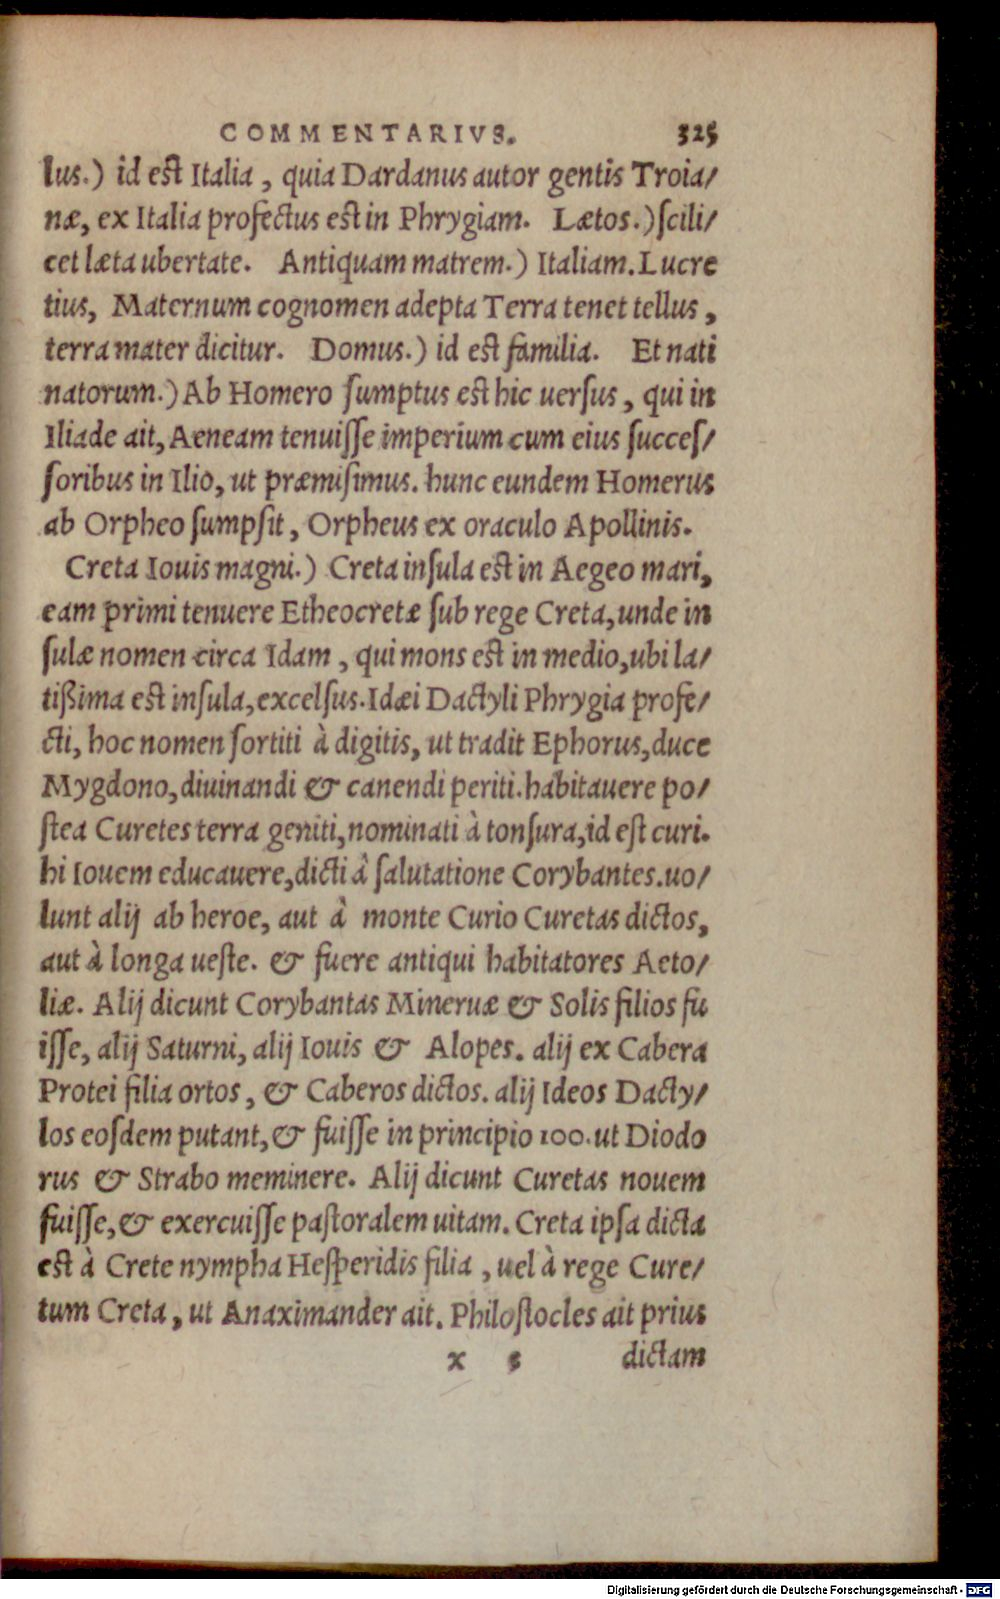 COMMENTARIVS. 325
lus.) id est Italia, quia Dardanus autor gentis Troia/
næ, ex Italia profectus est in Phrygiam. Lætos.) scili/
cet læta ubertate. Antiquam matrem.) Italiam. Lucre
tius, Maternum cognomen adepta Terra tenet tellus,
terra mater dicitur. Domus.) id est familia. Et nati
natorum.) Ab Homero sumptus est hic uersus, qui in
Iliade ait, Aeneam tenuisse imperium cum eius succes/
soribus in Ilio, ut præmisimus. hunc eundem Homerus
ab Orpheo sumpsit, Orpheus ex oraculo Apollinis.
Creta Iouis magni.) Creta insula est in Aegeo mari,
eam primi tenuere Etheocretæ sub rege Creta, unde in
sulæ nomen circa Idam, qui mons est in medio, ubi la/
tißima est insula, excelsus. Idæi Dactyli Phrygia profe/
cti, hoc nomen sortiti à digitis, ut tradit Ephorus, duce
Mygdono, diuinandi & canendi periti. habitauere po/
stea Curetes terra geniti, nominati à tonsura, id est curi.
hi Iouem educauere, dicti â salutatione Corybantes. uo/
lunt alij ab heroe, aut à monte Curio Curetas dictos,
aut à longa ueste. & fuere antiqui habitatores Aeto/
liæ. Alij dicunt Corybantas Mineruæ & Solis filios fu
isse, alij Saturni, alij Iouis & Alopes. alij ex Cabera
Protei filia ortos, & Caberos dictos. alij Ideos Dacty/
los eosdem putant, & fuisse in principio 100. ut Diodo
rus & Strabo meminere. Alij dicunt Curetas nouem
fuisse, & exercuisse pastoralem uitam. Creta ipsa dicta
est à Crete nympha Hesperidis filia, uel à rege Cure/
tum Creta, ut Anaximander ait. Philostocles ait prius
x 5 dictam
Digitalisierung gefördert durch die Deutsche Forschungsgemeinschaft - DFG